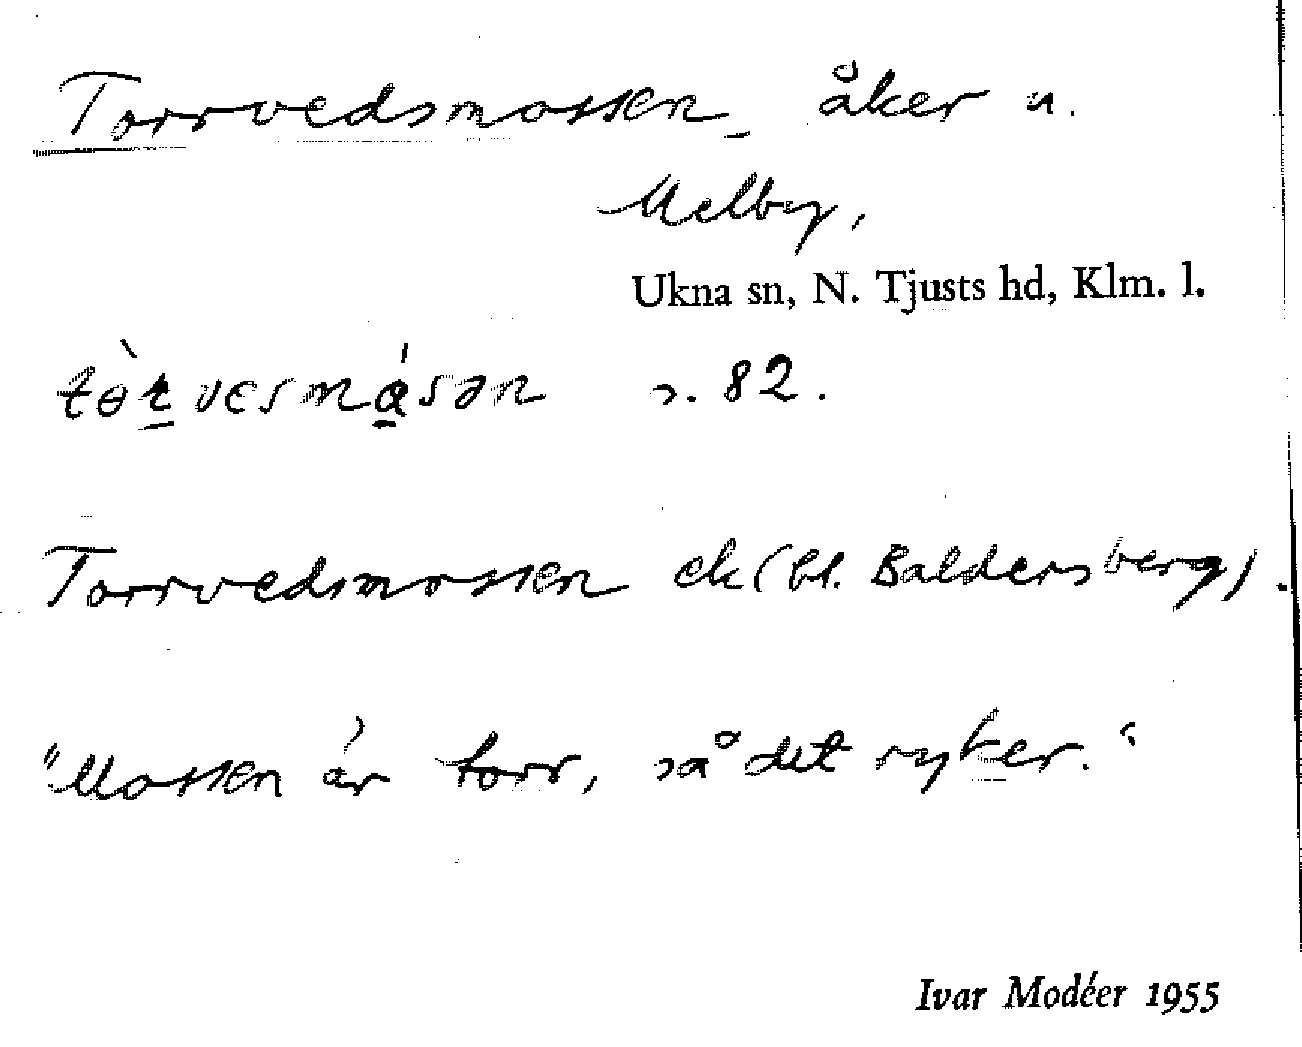 Torrvedsmossen, åker u.
Melby,
Ukna sn, N. Tjusts hd, Klm. l.
s. 82.
Torrvedsmossen ek (bl. Baldersberg).
"Mossen är torr, så det ryker."
Ivar Modéer 1955